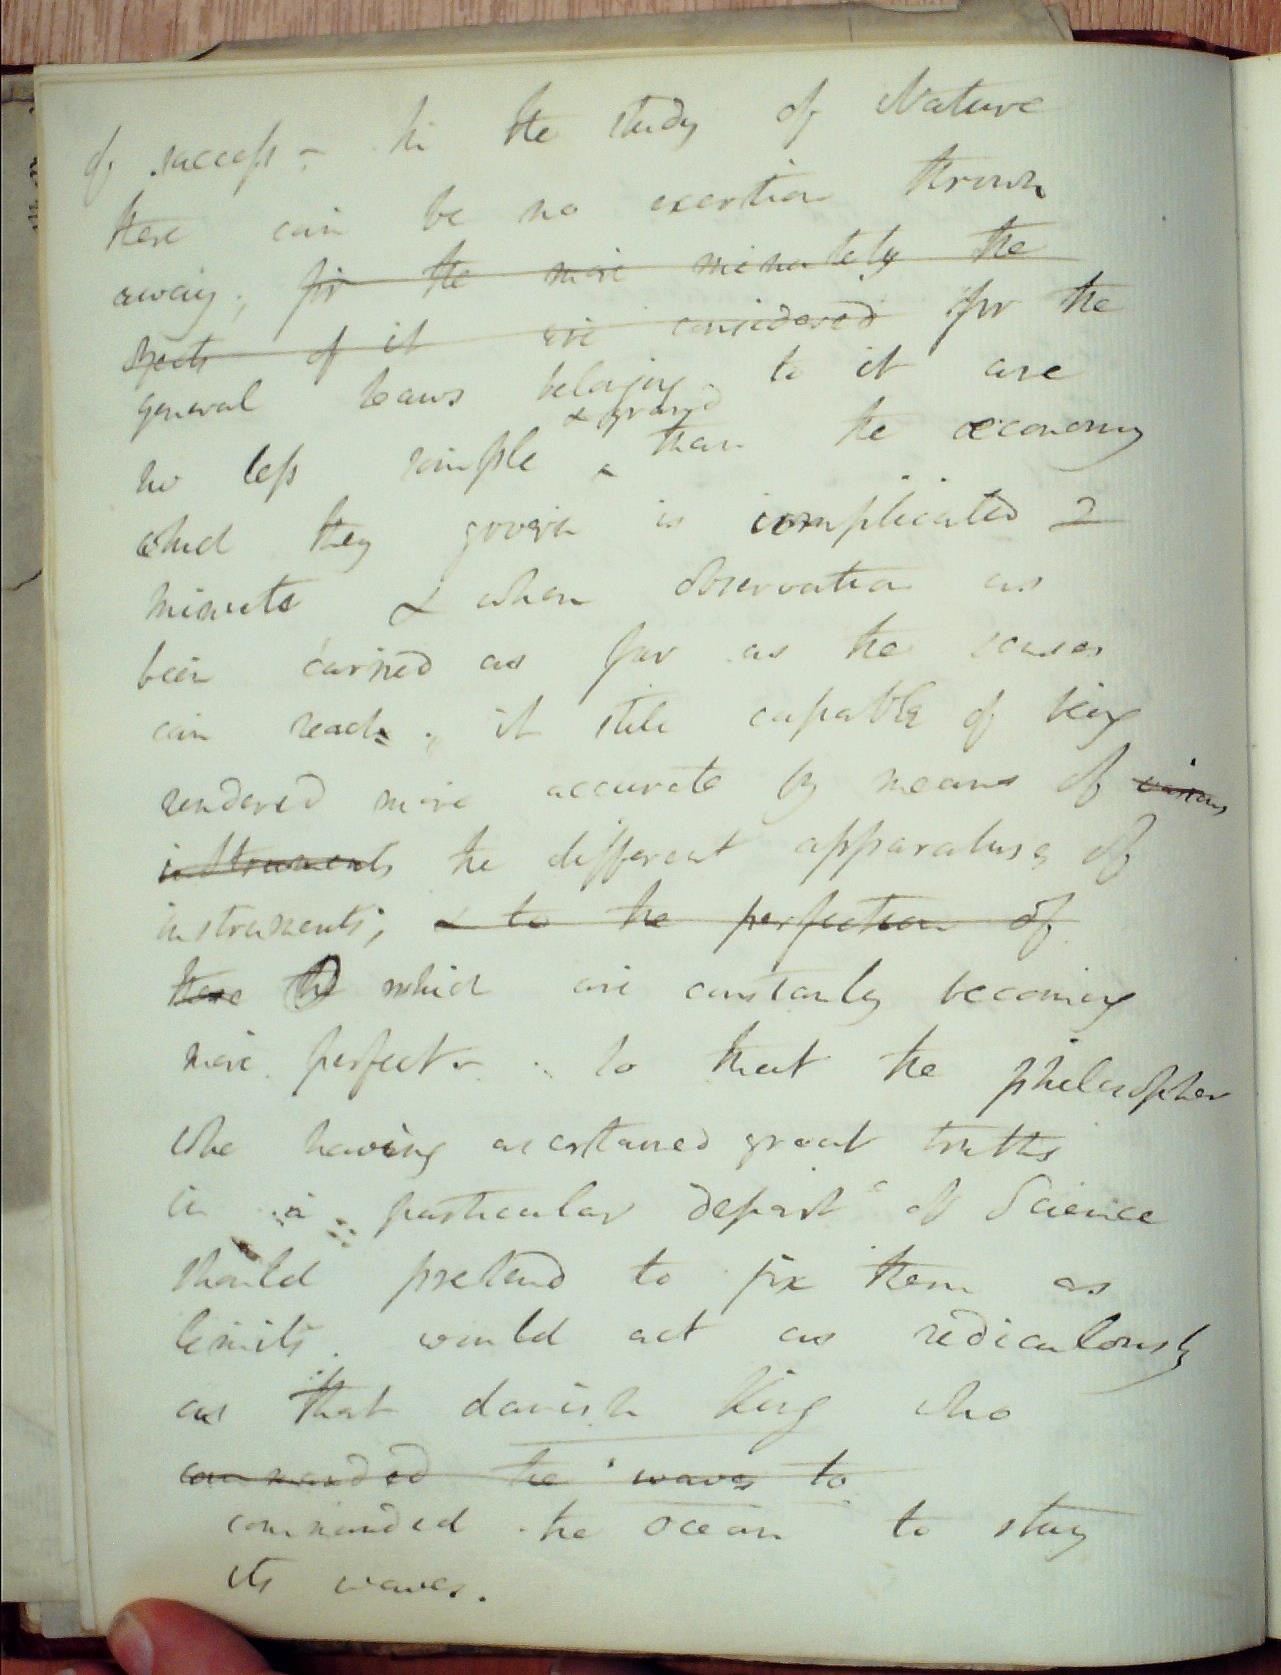 of success - In the study of Nature
there can be no exertion thrown
away; for the more minutely the
objects of it are considered for the
general Laws belonging to it are
& grand
no less simple ^ than the œconomy
which they govern is complicated &
minute & when observation as
been carried as far as the senses
can reach, it still capable of being
rendered more accurate by means of various
instruments the different apparatuses of
instruments; & to the perfection of
these which are constantly becoming
more perfect - So that the philosopher
who having ascertained great truths
in a particular depart of Science
should pretend to fix them as
limits would act as rediculously
as that danish King who
commanded the waves to
commanded the ocean to stay
its waves.